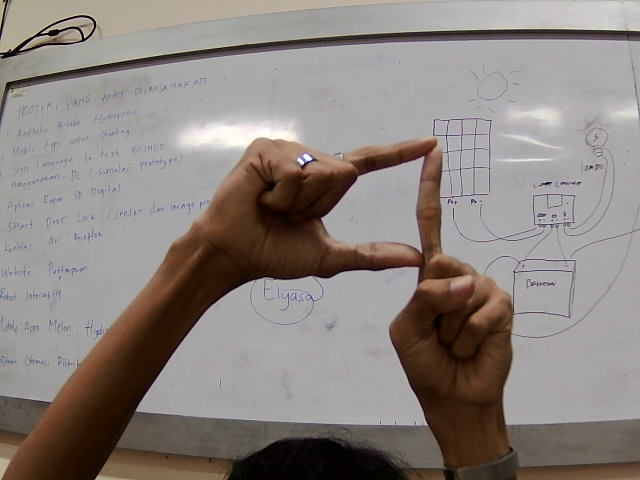 PROJEK YANG AKAN DILAKSANAKAN
Aesthetic Portable Hydroponic
Mobile Apps untuk Stunting
Sign Language to text BISINDO
Menggunakan DL (simulasi prototype)
Aplikasi Rapor SD Digital
Smart Door Lock (sensor dan image pro
Kualitas Air Bioflok
Website Pertanian
Robot Interaktif
Mobile Apps Melon, Hydro
Sistem Otomasi Distrib
Elyasa
P+ P-
LAMPU
Batterai